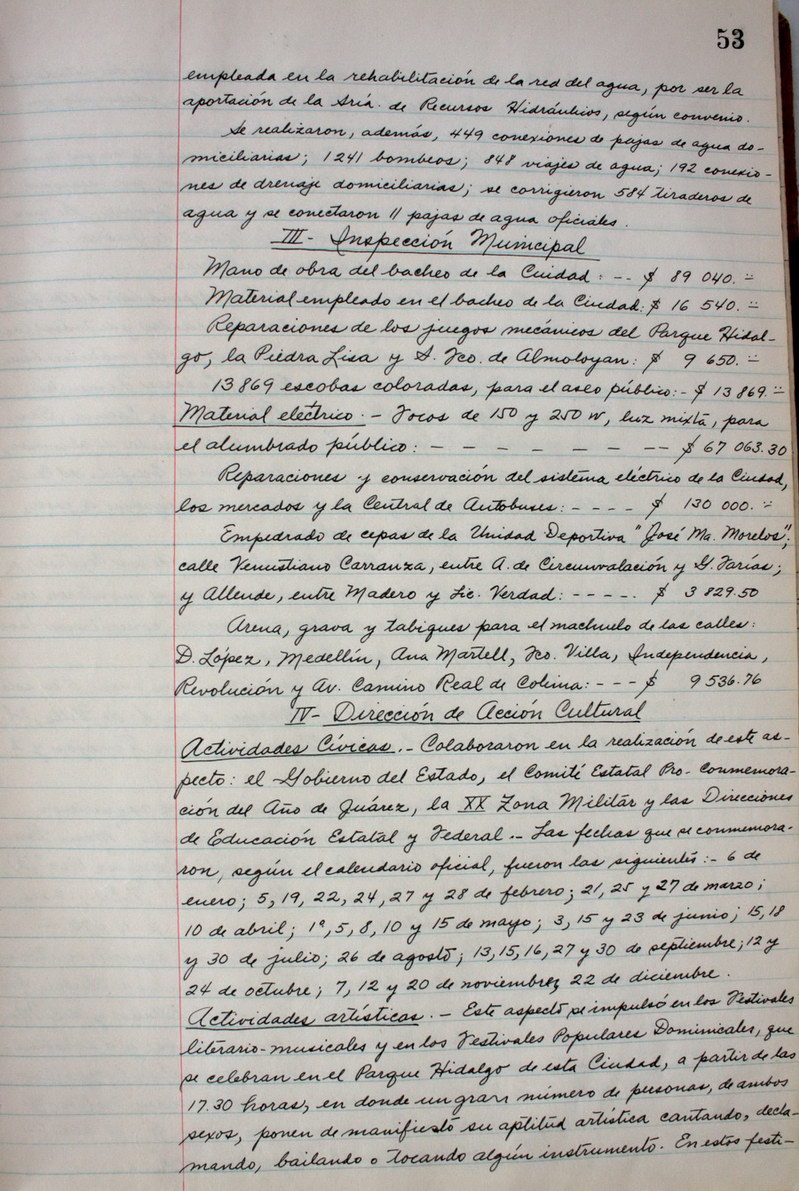 53
empleada en la rehabilitación de la red del agua, por ser la
aportación de la Sría. de Recursos Hidráulicos, según convenio.
Se realizaron, además, 449 conexiones de pajas de agua do-
miciliarias; 1241 bombeos; 848 viajes de agua; 192 conexio-
nes de drenaje domiciliarias; se corrigieron 584 tiraderos de
agua y se conectaron 11 pajas de agua oficiales.
III- Inspección Municipal
Mano de obra del bacheo de la Ciudad: -- $ 89 040.=
Material empleado en el bacheo de la Ciudad: $ 16 540.=
Reparaciones de los juegos mecánicos del Parque Hidal-
go, la Piedra Lisa y S. Fco. de Almoloyan: $ 9 650.=
13869 escobas coloradas, para el aseo público:- $ 13 869.=
Material eléctrico.- Focos de 150 y 250 W, luz mixta, para
el alumbrado público: - - - - - - -- $ 67 063.30
Reparaciones y conservación del sistema eléctrico de la Ciudad,
los mercados y la Central de Autobuses: - - - - $ 130 000.=
Empedrado de cepas de la Unidad Deportiva "José Ma. Morelos";
calle Venustiano Carranza, entre A. de Circunvalación y G. Farías;
y Allende, entre Madero y Lic. Verdad: - - - - - $ 3 829.50
Arena, grava y tabiques para el machuelo de las calles:
D. López, Medellín, Ana Martell, Fco. Villa, Independencia,
Revolución y Av. Camino Real de Colima: - - - $ 9 536.76
IV- Dirección de Acción Cultural
Actividades Cívicas.- Colaboraron en la realización de este as-
pecto: el Gobierno del Estado, el Comité Estatal Pro-Conmemora-
ción del Año de Juárez, la XX Zona Militar y las Direcciones
de Educación Estatal y Federal.- Las fechas que se conmemora-
ron, según el calendario oficial, fueron las siguientes:- 6 de
enero; 5, 19, 22, 24, 27 y 28 de febrero; 21, 25 y 27 de marzo;
10 de abril; 1º, 5, 8, 10 y 15 de mayo; 3, 15 y 23 de junio; 15, 18
y 30 de julio; 26 de agosto; 13, 15, 16, 27 y 30 de septiembre; 12 y
24 de octubre; 7, 12 y 20 de noviembre, 22 de diciembre.
Actividades artísticas.- Este aspecto se impulsó en los Festivales
literario-musicales y en los Festivales Populares Dominicales, que
se celebran en el Parque Hidalgo de esta Ciudad, a partir de las
17.30 horas, en donde un gran número de personas, de ambos
sexos, ponen de manifiesto su aptitud artística cantando, decla-
mando, bailando o tocando algún instrumento. En estos festi-